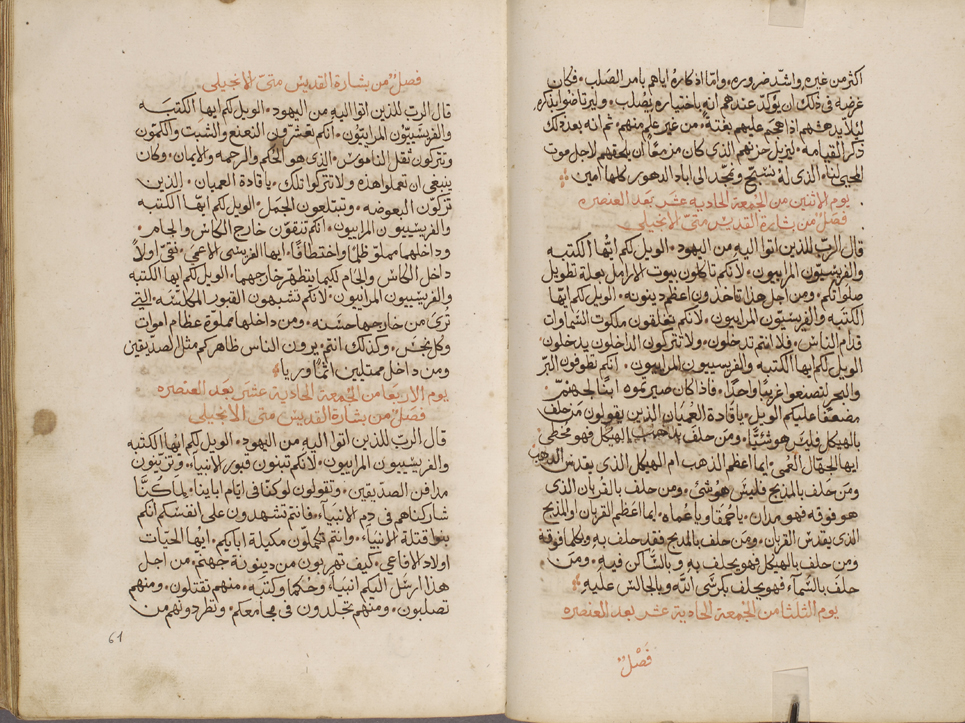 اكثر من غيره واشد ضروره، واما اذكاره اياهم بامر الصلب، فكان
غرضه في ذلك ان يوكد عندهم انه باختياره يصلب، وليرتاضوا بذكره
ليلا يدهشهم اذا هجم عليهم بغتة، من غير علم منهم، ثم انه بعد ذلك
ذكر القيامه، ليزيل حزنهم الذي كان مزمعًا ان يلحقهم لاجل موت
المحيي لنا، الذي له يسبح ونمجد الى اباد الدهور كلها امين
يوم الاثنين من الجمعة الحاديه عشر بعد العنصره
فصلٌ من بشارة القديس متىّ الانجيلي
قال الربّ للذين اتوا اليه من اليهود، الويل لكم ايّها الكتبه
والفريسيون المراييون، لانكم تاكلون بيوت الارامل بعلة تطويل
صلواتكم، ومن اجل هذا تاخذون اعظم دينونه، الويل لكم ايّها
الكتبه والفريسيّون المراييون، لانكم تغلقون ملكوت السماوات
قدام الناس، فلا انتم تدخلون، ولا تتركون الداخلون يدخلون،
الويل لكم ايها الكتبه والفريسييون المراييون، انكم تطوفون البرّ
والبحر لتصنعوا غريبًا واحدًا، فاذا كان صيرتموه ابنًا لجهنمّ
مضعفًا عليكم الويل، يا قادة العُميان الذين يقولون مَن حلف
بالهيكل فليس هو شيًا، ومن حلف بذهب الهيكل فهو مُخطي
ايها الجهال العُمي، ايما اعظم الذهب ام الهيكل الذي يقدس الذهب
ومَن حلف بالمذبح فليس هو شي، ومن حلف بالقربان الذي
هو فوقه فهو مدان، يا حُمقا ويا عُماه، ايما اعظم القربان او المذبح
الذي يقدس القربان، ومن حلف بالمذبح فقد حلف به وبكلما فوقه
ومن حلف بالهيكل فهو يحلف به وبالسّاكن فيه، ومَن
حلف بالسَّمآء فهو يحلف بكرسّي الله وبالجالس عليه
يوم الثلثا من الجمعة الحاديه عشر بعد العنصره
فَصْلٌ
فصلٌ من بشارة القديس متىّ الانجيلي
قال الرب للذين اتوا اليه من اليهود، الويل لكم ايها الكتبَه
والفريسّيوّن المراييّون، انكم تعشرون النعنع والشبت والكمون
وتتركون ثقل الناموس، الذي هو الحكم والرحمه والايمان، وكان
ينبغي ان تعملوا هذه ولا تتركوا تلك، يا قادة العميان، الذين
تزكّون البعوضه، وتبتلعون الجمَل، الويل لكم ايهّا الكتبه
والفريسّييون المراييون، انكم تنقون خارج الكاس والجام،
وداخلهما مملوّ ظلمًا واختطافًا، ايها الفريسّي الاعمي، نقّي اولاً
داخل الكاس والجام لكيما يتطهر خارجهما، الويل لكم ايها الكتبه
والفريسّييون المراييون، لانكم تشبهون القبور المكلسّه، التي
تري من خارجها حسَنه، ومن داخلها مملوّة عظام اموات
وكل نجس، وكذلك انتم يرون الناس ظاهركم مثل الصديقين
ومن داخل ممتليين اثمًا وريا
يوم الاربعا من الجمعة الحادية عشر بعد العنصره
فصلٌ من بشارة القديس متى الانجيلي
قال الربّ للذين اتوا اليه من اليهود، الويل لكم ايها الكتبه
والفريسّييون المراييون، لانكم تبنون قبور الانبياء، وتزيّنون
مدافن الصديقين، وتقولون لو كنّا في ايّام اباينا، لما كُنّا
شاركناهم في دم الانبياء، فانتم تشهدون على انفسكم انكم
بنوا قتلة الانبياء، وانتم تكملون مكيلة ابايكم، ايها الحيّات
اولاد الافاعي، كيف تهربون من دينونة جهنمّ، من اجل
هذا ارسل اليكم انبياء وحكما وكتبه، منهم تقتلون، ومنهم
تصلبون، ومنهم تجلدون في مجامعكم، وتطردونهم من
61